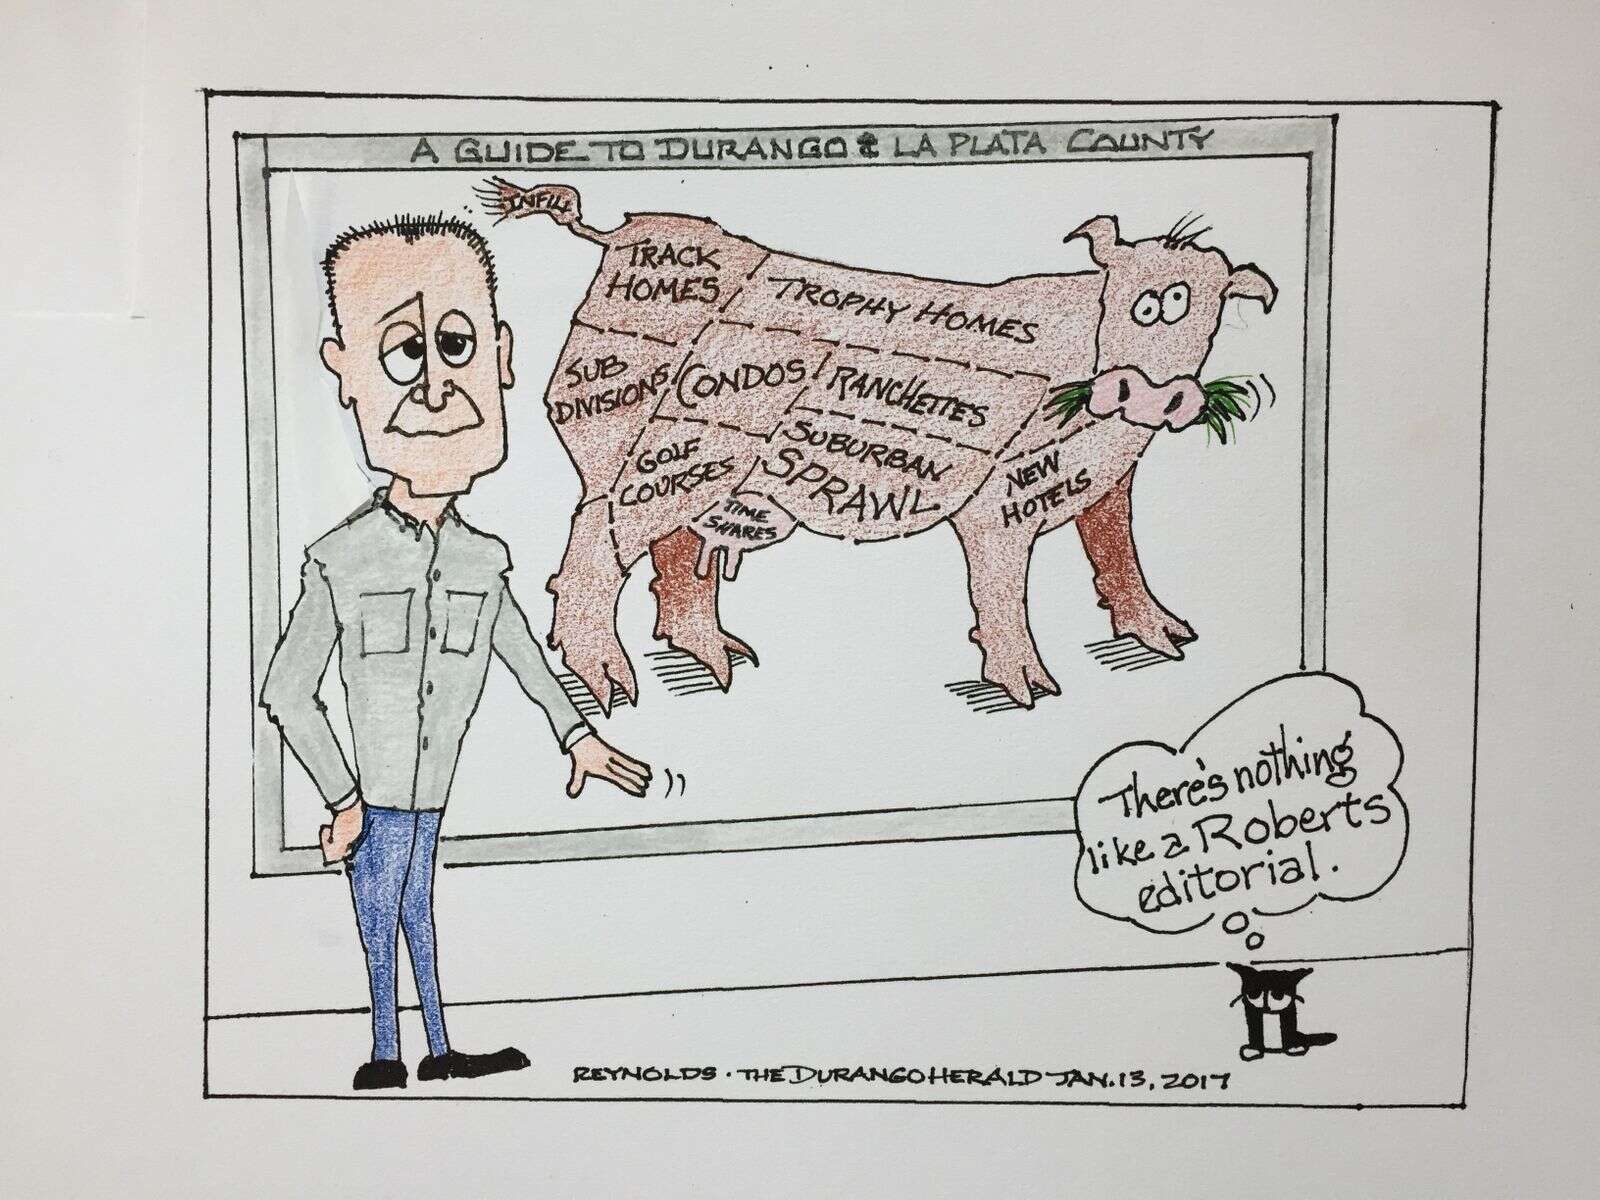 A GUIDE TO DURANGO & LA PLATA COUNTY
INFILL
TRACK
HOMES
TROPHY HOMES
SUB
DIVISIONS
CONDOS
RANCHETTES
GOLF
COURSES
SUBURBAN
SPRAWL
NEW
HOTELS
TIME
SHARES
There's nothing
like a Roberts
editorial.
REYNOLDS · THE DURANGO HERALD JAN. 13, 2017